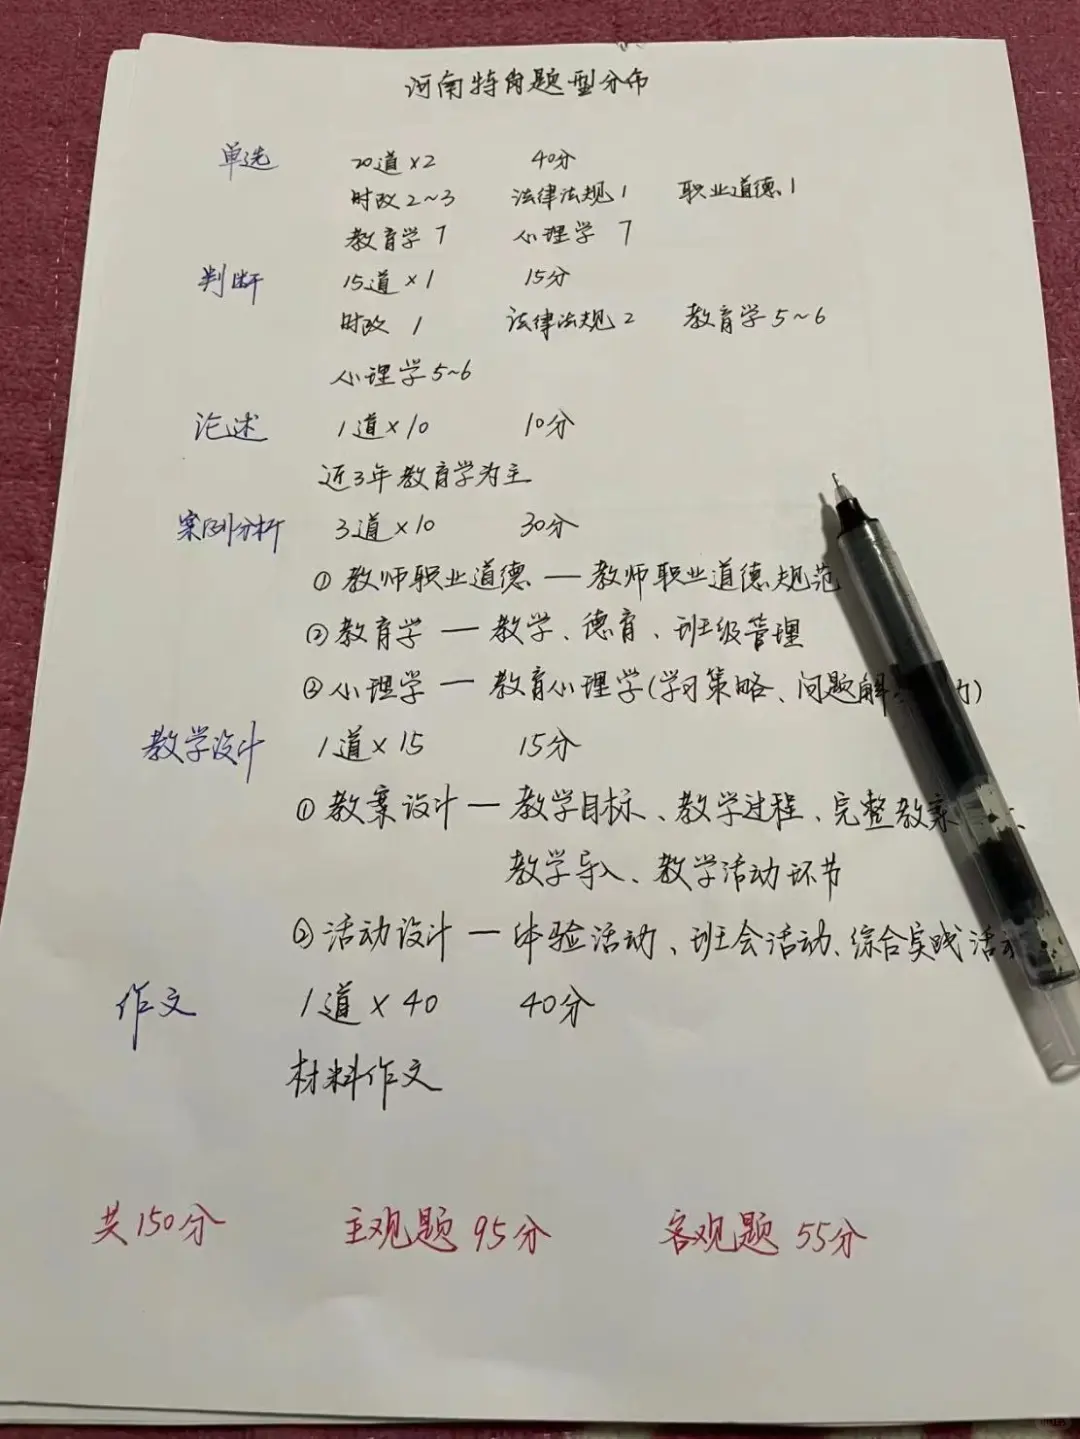 河南特岗题型分布
单选 20道×2 40分
时政2~3 法律法规1 职业道德1
教育学7 心理学7
判断 15道×1 15分
时政 1 法律法规2 教育学5~6
心理学5~6
论述 1道×10 10分
近3年教育学为主
案例分析 3道×10 30分
①教师职业道德—教师职业道德规范
②教育学—教学、德育、班级管理
③心理学—教育心理学(学习策略、问题解
教学设计 1道×15 15分
①教案设计—教学目标、教学过程、完整教案
教学导入、教学活动环节
②活动设计—体验活动、班会活动、综合实践活动
作文 1道×40 40分
材料作文
共150分 主观题95分 客观题55分